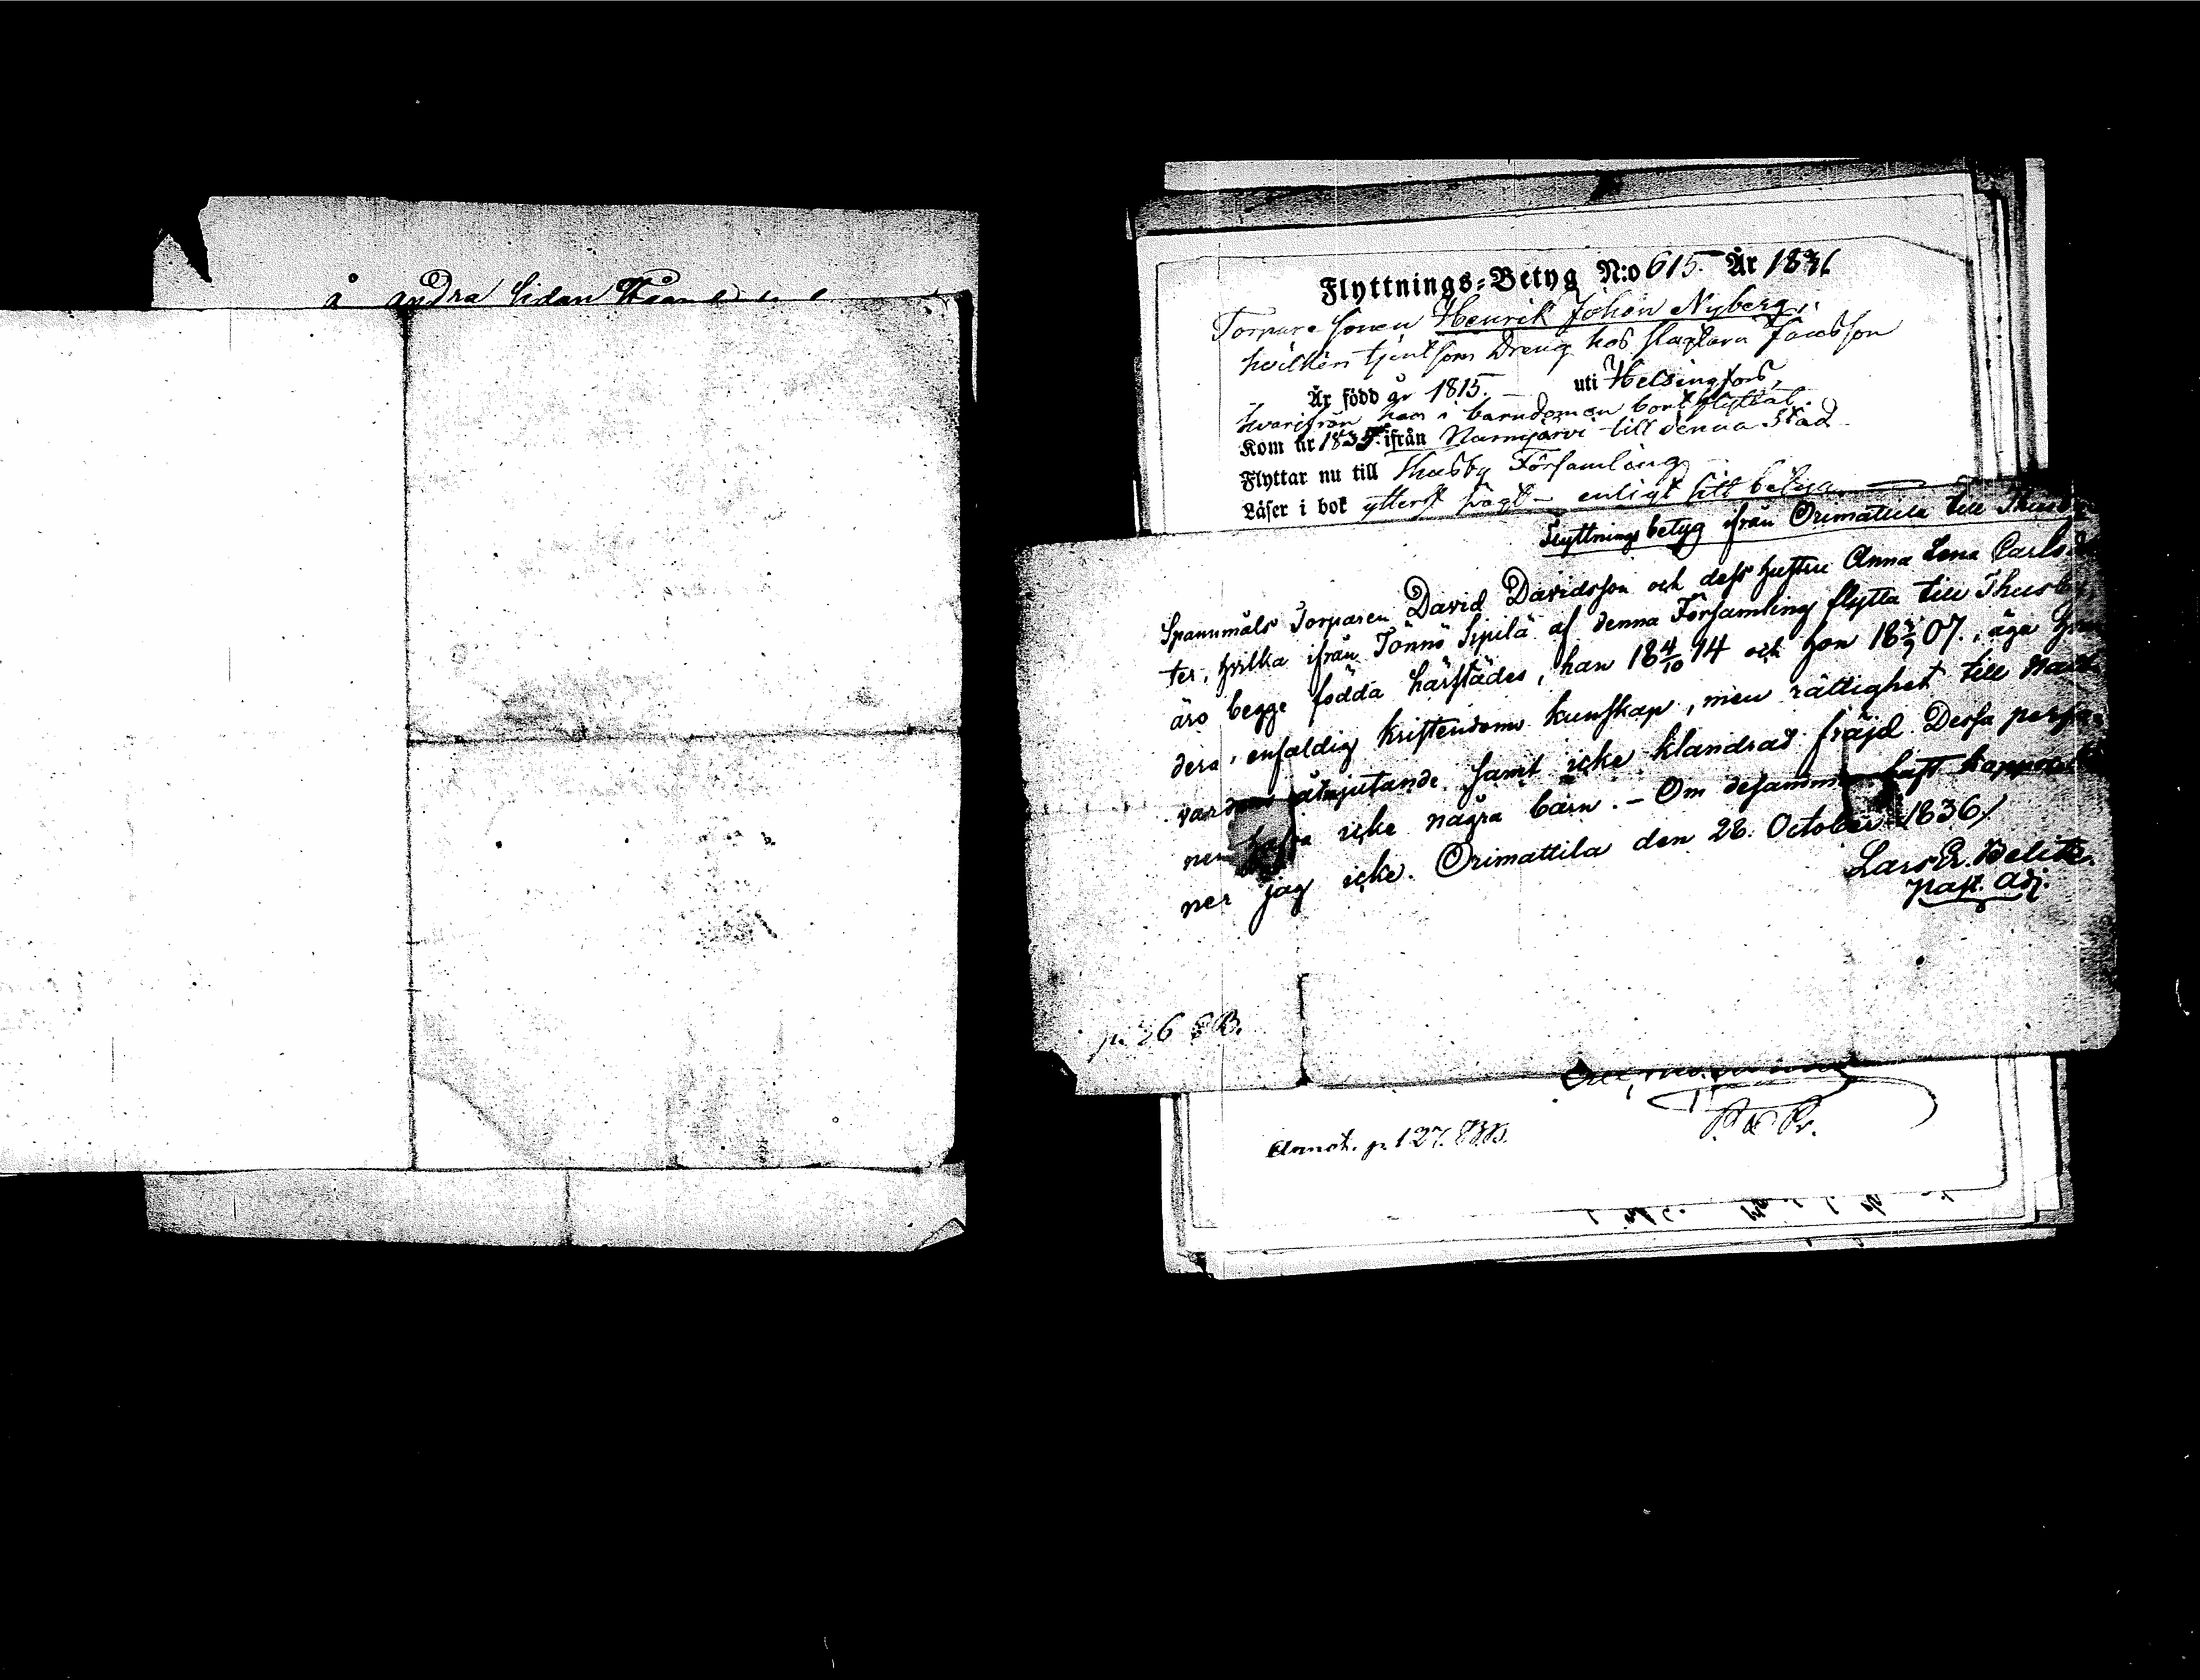 å andra sidan
Flyttnings-Betyg N:o 615. År 1836
Torpare sonen Henrik Johan Nyberg,
hvilken tjent som Dreng hos Jacobsson
Är född år 1815. — uti Helsingfors,
hvarifrån han i barndomen bort flyttat.
Kom år 1835 ifrån Nurmijärvi till denna Stad
Flyttar nu till Thusby Församling
Läser i bok ytterst svagt — enligt sitt betyg.
Flyttningsbetyg ifrån Orimattila till Thusby
Spannmåls Torparen David Davidsson och dess hustru Anna Lena Carlsdot
ter, hvilka ifrån Tönnö Sipilä af denna Församling flytta till Thusby,
äro begge födda härstädes, han 18 4/10 14 och hon 18 07., äga
dera enfaldig kristendoms kunskap, men rättighet till Natt
vardens åtnjutande samt icke klandrad fräjd. Dessa perso-
ner hafva icke några barn. — Om desamma haft koppor kän
ner jag icke. Orimattila den 28. October 1836/
Lars Er. Delitz.
Past. Adj.
p. 26 SB.
Annot. p. 127.